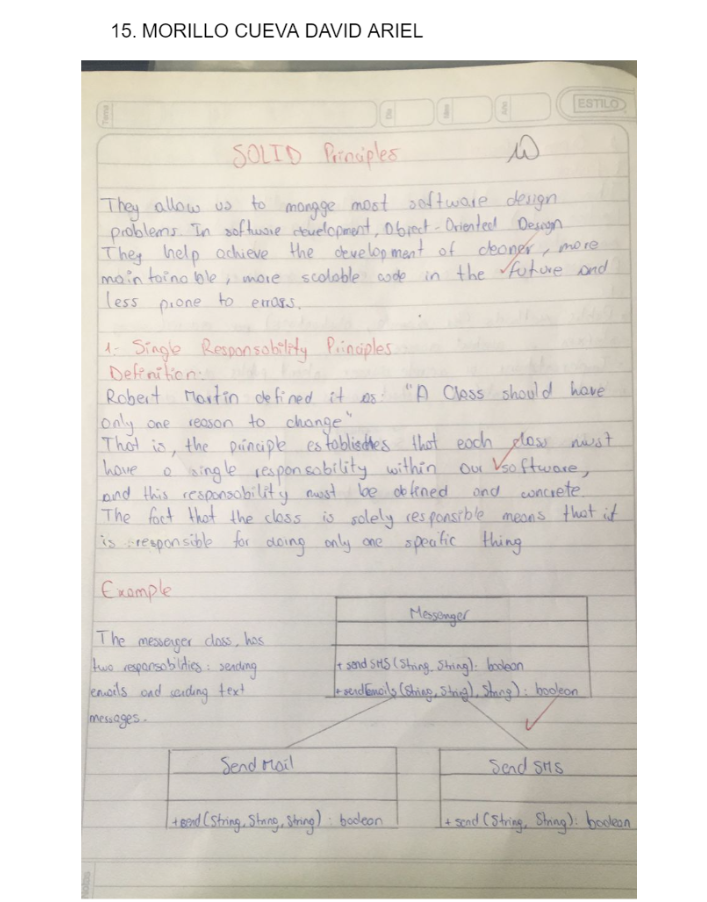 15. MORILLO CUEVA DAVID ARIEL
Tema
Día
Mes
Año
ESTILO
SOLID Principles
They allow us to mangge most software design
problems. In software development, Object-Oriented Design
They help achieve the development of cleaner, more
maintainable, more scalable code in the future and
less prone to errors.
1- Single Responsability Principles
Definition:
Robert Martin defined it as: "A Class should have
only one reason to change"
That is, the principle establishes that each class must
have a single responsability within our software,
and this responsability must be defined and concrete.
The fact that the class is solely responsible means that it
is responsible for doing only one specific thing
Example
The messenger class, has
two responsabilities: sending
emails and sending text
messages.
Messenger
+ send SMS (String, String): boolean
+ sendEmails (String, String), String): boolean
Send Mail
+ send (String, String, String): boolean
Send SMS
+ send (String, String): boolean